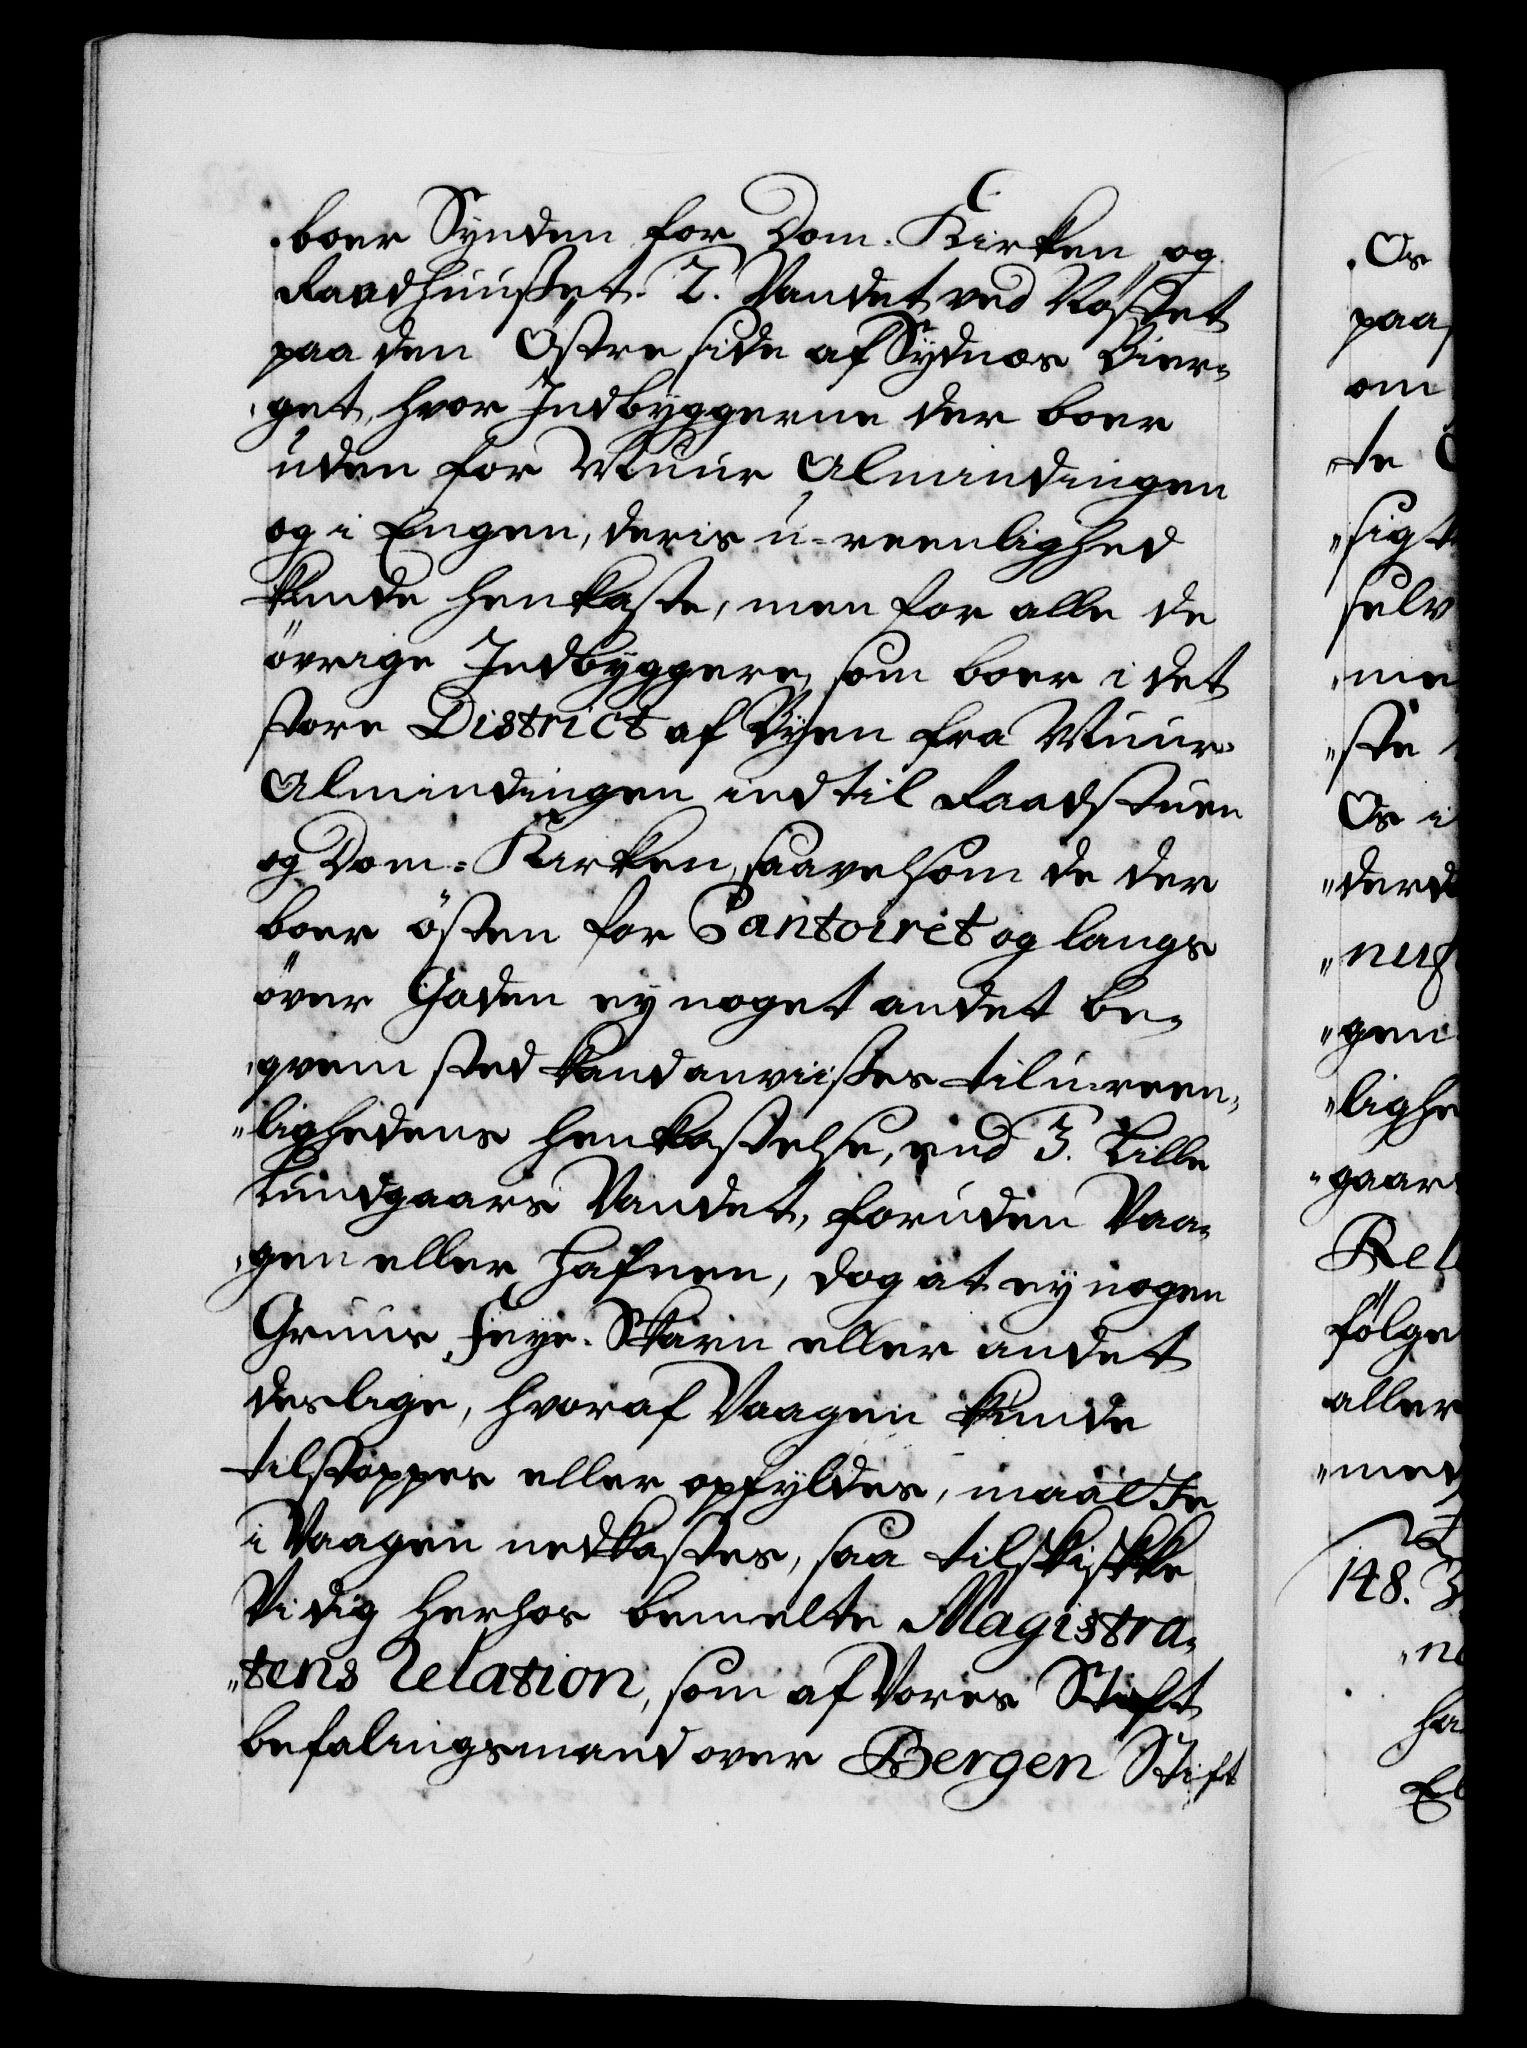 boer Synden for Dom-Kirken og
Raadhuusset. 2. Vandet ved Nöstet
paa den Östre side af Sydnæs Bier-
get, hvor Indbyggerne der boer
uden for Muur Almindingen
og i Engen, deris u-reenlighed
kunde henkaste, men for alle de
övrige Indbyggere, som boer i det
store District af Byen fra Muur-
Almindingen ind til Raadstuen
og Dom-Kirken, saavelsom de der
boer östen for Contoiret og langs
över Gaden ey noget andet be-
qvem sted kand anviisses til u-reen-
lighedens henkastelse, end 3. Lille
Lundgaards Vandet, foruden Vaa-
gen eller Hafnen, dog at ey nogen
Gruus, Feye-Skarn eller andet
deslige, hvoraf Vaagen kunde
tilstoppes eller opfyldes, maatte
i Vaagen nedkastes, saa tilskikke
Vi dig herhos bemelte Magistra-
tens Relation, som af Vores Stift
befalingsmand over Bergen Stift
Os
paa
om
te
sig
selv
me
ste
Os i
derd
nug
gen
lighe
gaar
Rel
følge
aller
med
148.
ne
ha
El